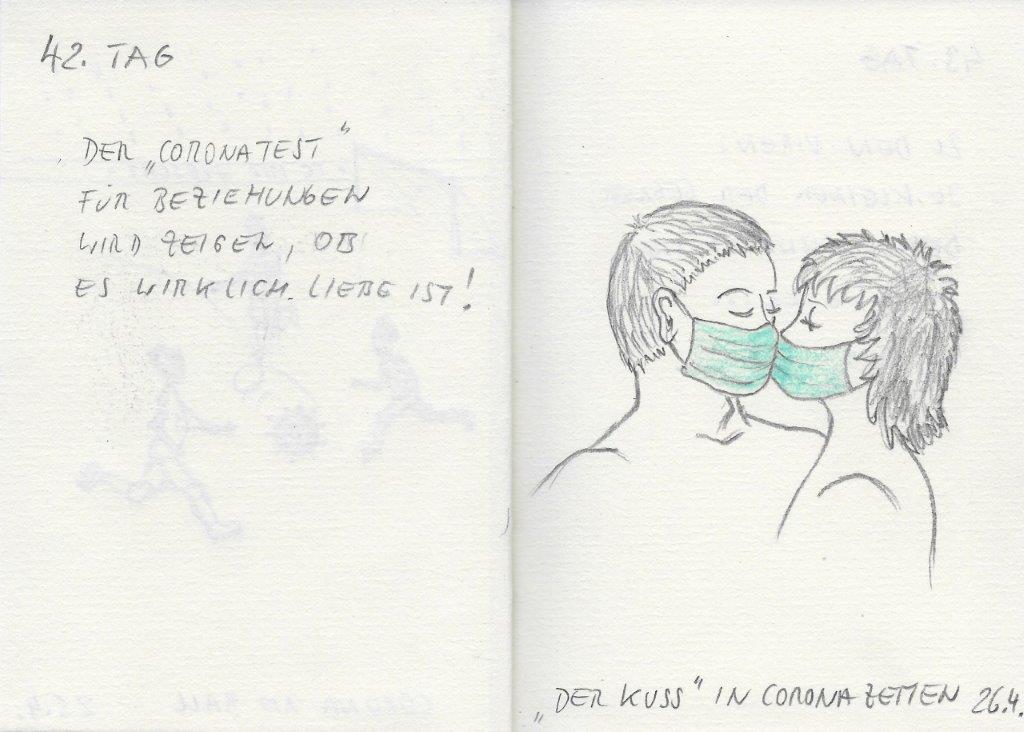 42. TAG
DER „CORONATEST“
FÜR BEZIEHUNGEN
WIRD ZEIGEN, OB
ES WIRKLICH LIEBE IST!
„DER KUSS“ IN CORONAZEITEN 26.4.